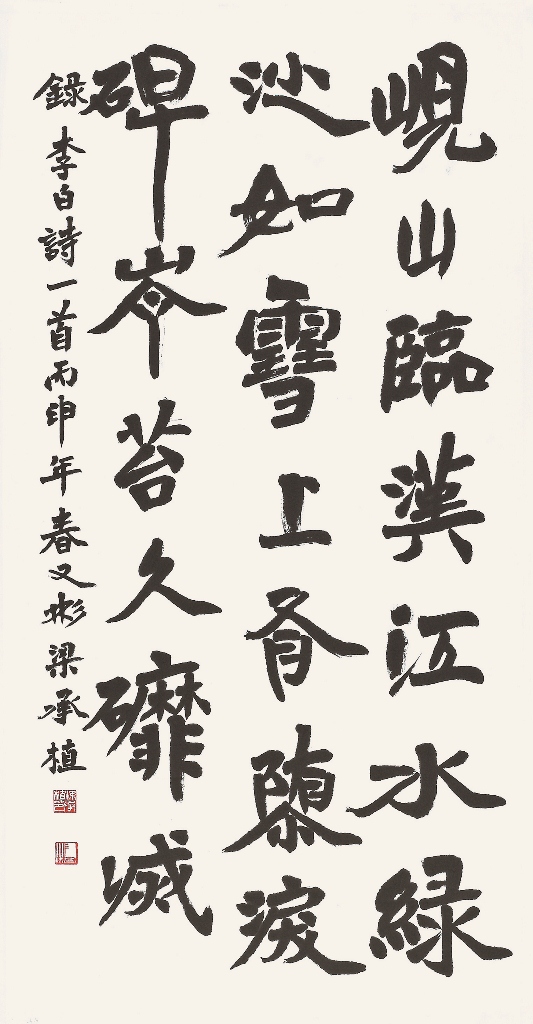 峴山臨漢江水綠
沙如雪上有墮淚
碑青苔久䃺滅
錄李白詩一首丙申年春又彬梁承植